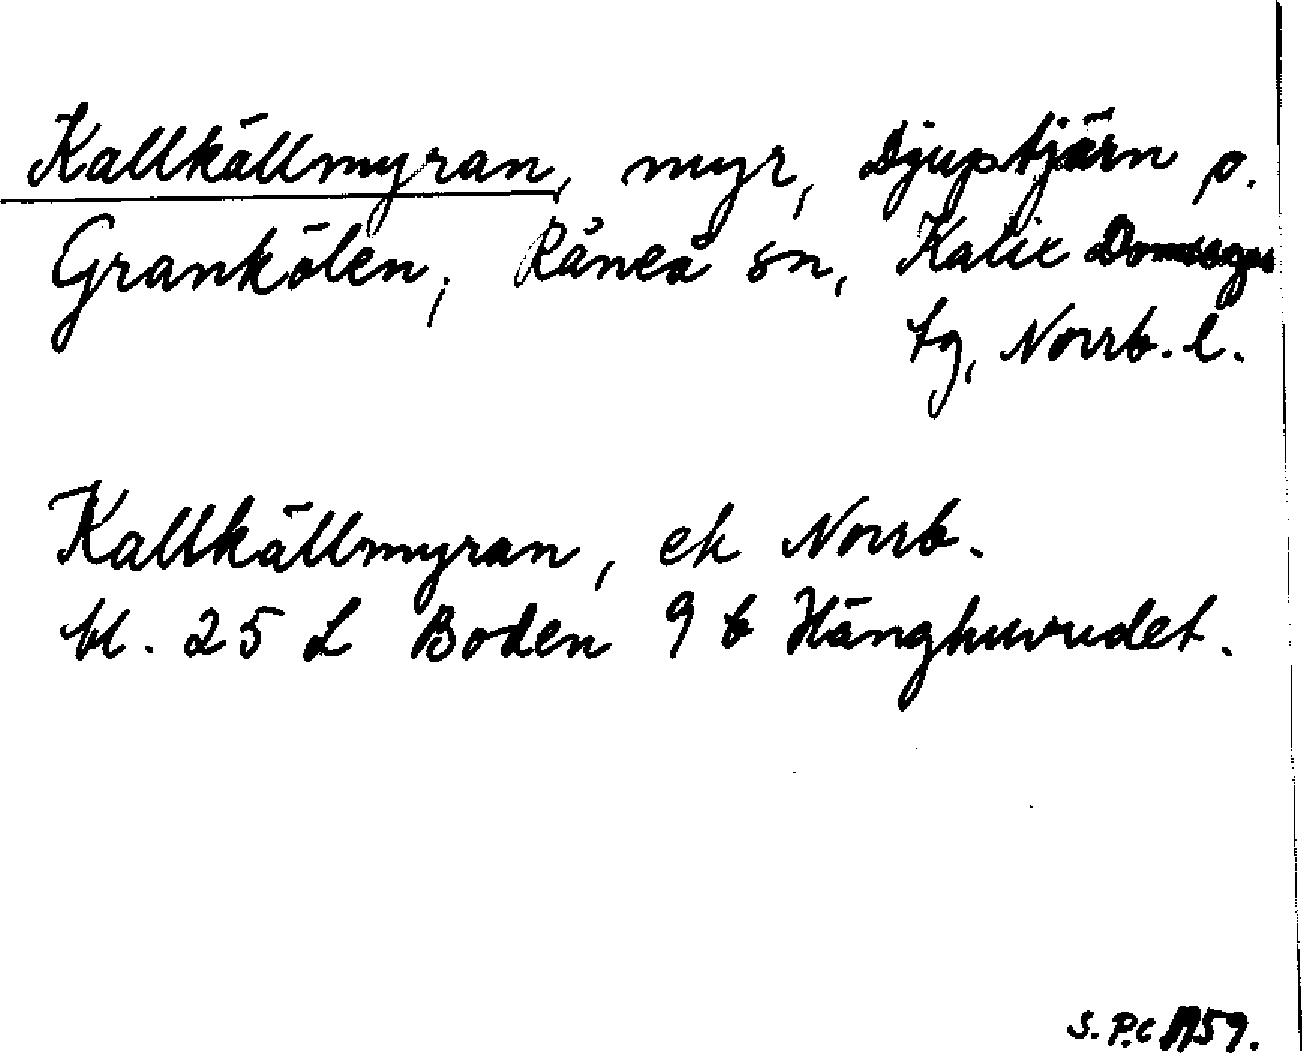 Kallkällmyran, myr, Djuptjärn o.
Grankölen, Råneå sn, Kalix Domsagas
tg, Norrb. l.
Kallkällmyran, ek Norrb.
bl. 25 L Boden 9 b Hänghuvudet.
S.P.C 1959.